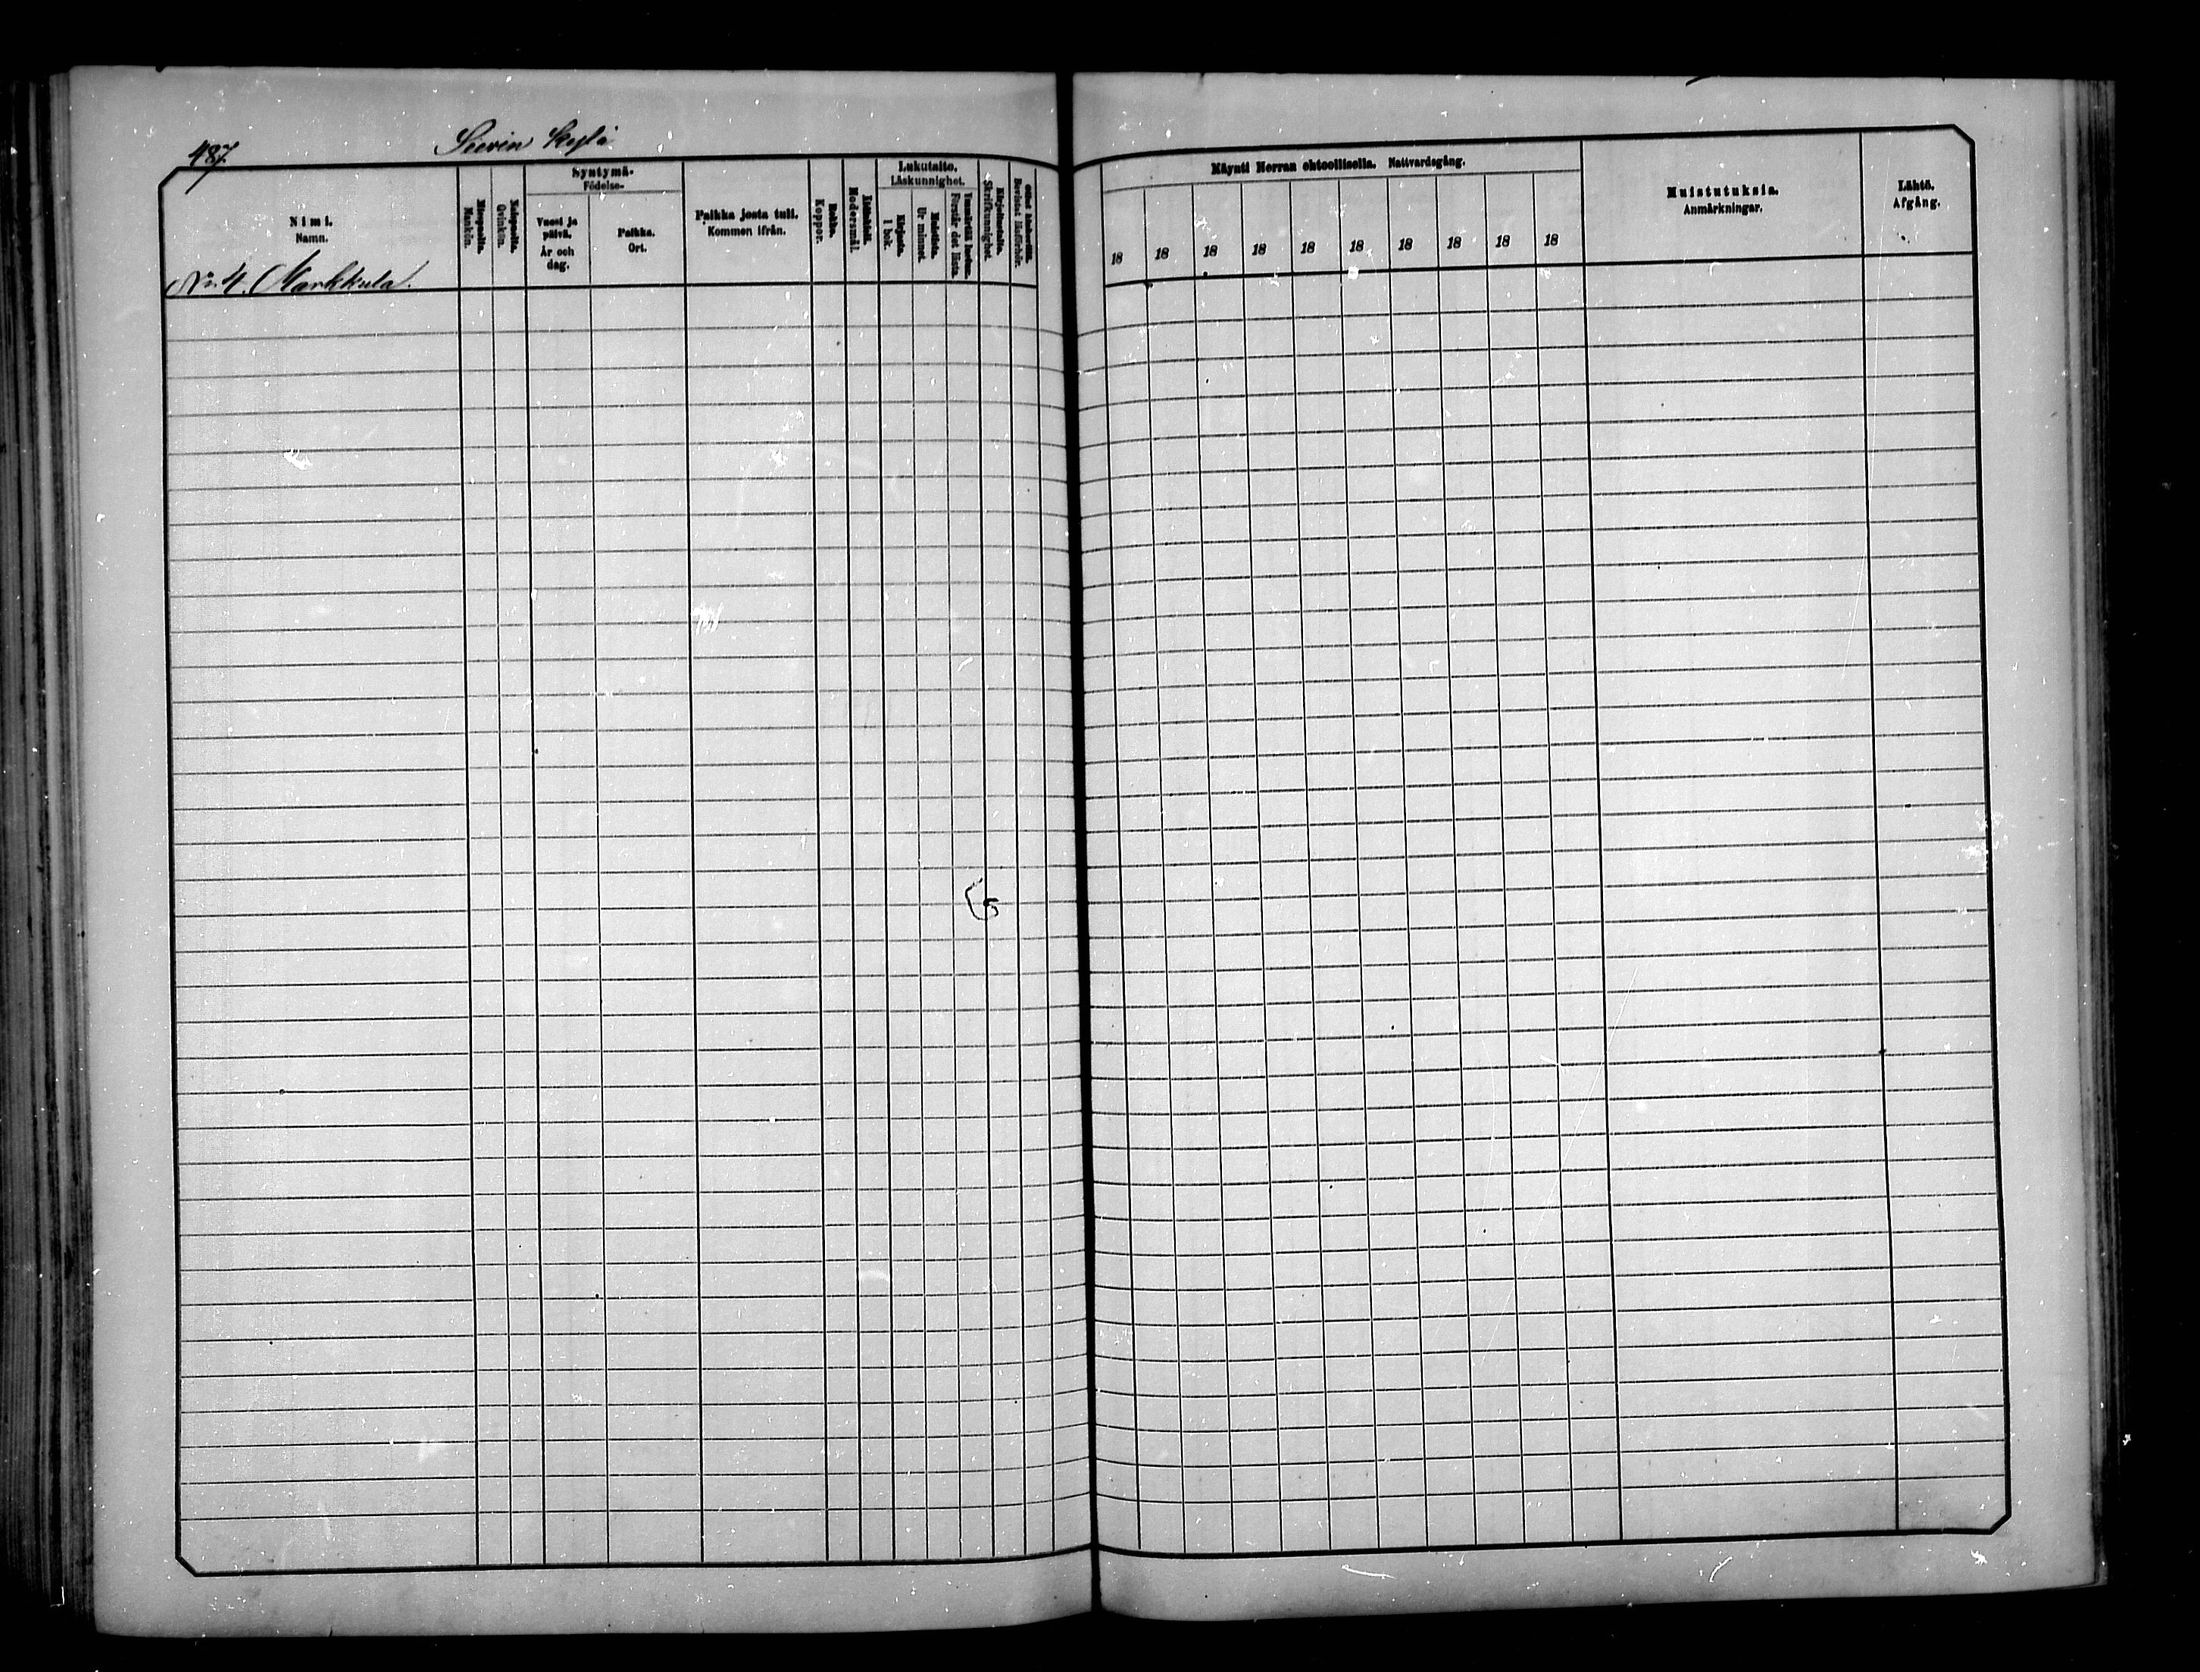 487
Sievin kylä
Nimi.
Namn.
Miespuolia.
Mankön.
Naispuolia.
Qvinkön.
Syntymä-
Födelse-
Vuosi ja
päivä.
År och
dag.
Paikka.
Ort.
Paikka josta tuli.
Kommen ifrån.
Rokko.
Koppor.
Äidinkieli.
Modersmål.
Lukutaito.
Läskunnighet.
Kirjasta.
I bok.
Muistista.
Ur minnet.
Ymmärtää luetun.
Förstår det lästa.
Kirjoitustaito.
Skrifkunnighet.
Bevistat läsförhör.
Käynti Herran ehtoollisella. Nattvardsgång.
18 18 18 18 18 18 18 18 18 18
Muistutuksia.
Anmärkningar.
Lähtö.
Afgång.
No 4. Markkula.